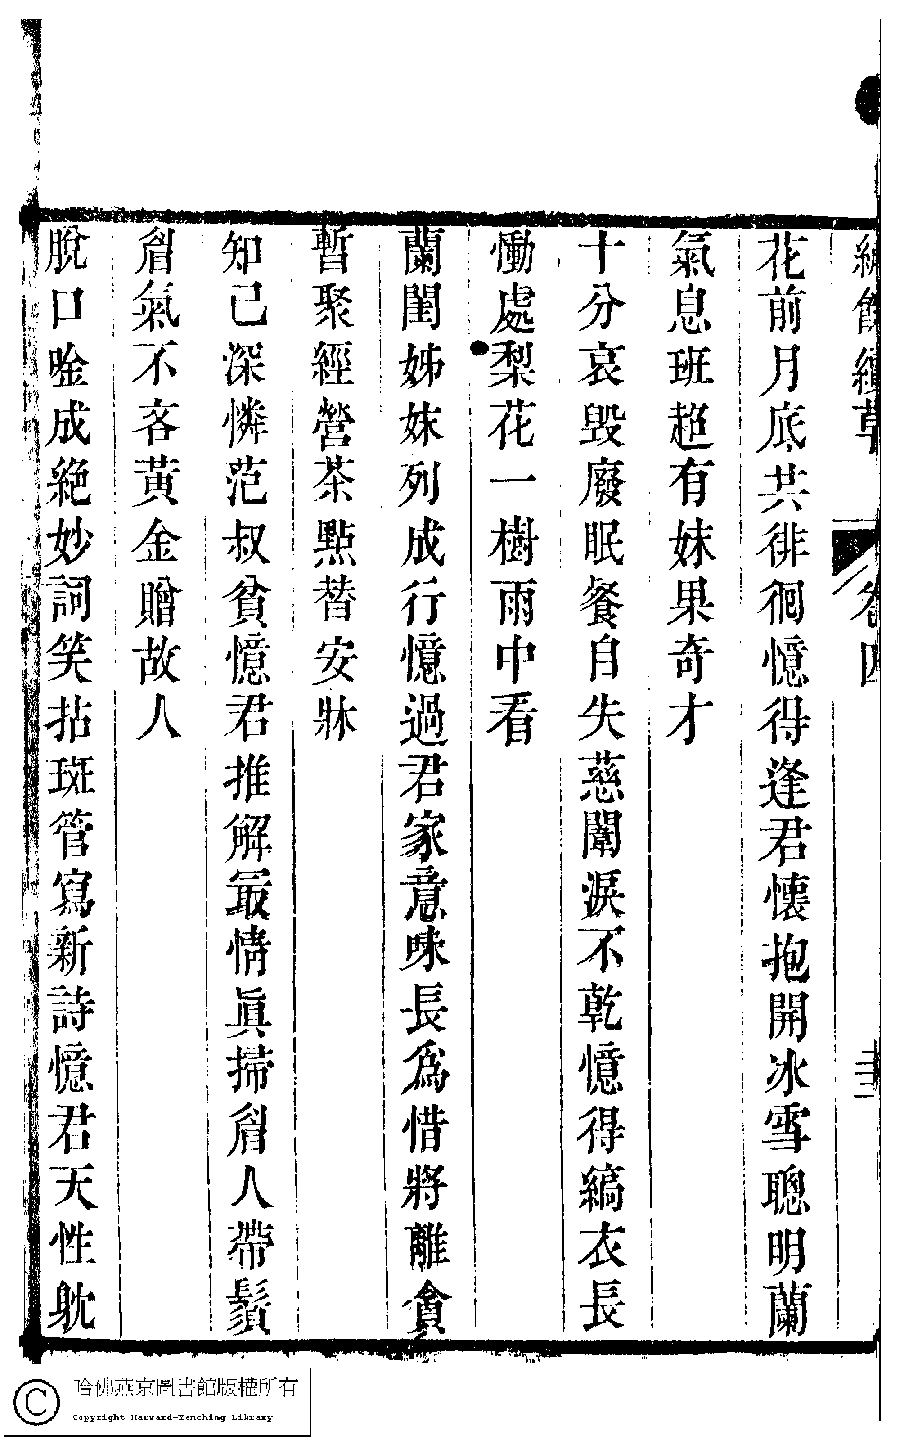 繡餘續草 卷四
花前月底共徘徊憶得逢君懷抱開冰雪聰明蘭
氣息班超有妹果奇才
十分哀毀廢眠餐自失慈闈淚不乾憶得縞衣長
慟處梨花一樹雨中看
蘭閨姊妹列成行憶過君家意味長爲惜將離貪
暫聚經營茶點替安牀
知己深憐范叔貧憶君推解最情眞掃眉人帶鬚
眉氣不吝黃金贈故人
脫口唫成絕妙詞笑拈斑管寫新詩憶君天性躭
哈佛燕京圖書館版權所有
Copyright Harvard-Yenching Library